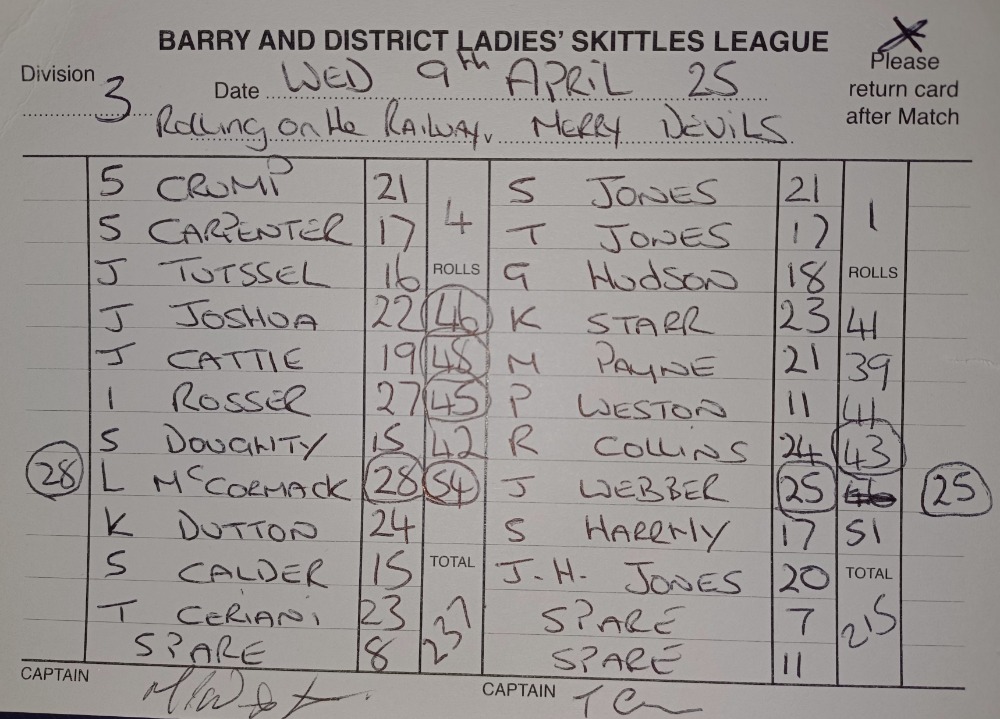 BARRY AND DISTRICT LADIES' SKITTLES LEAGUE
Division 3
Date WED 9th APRIL 25
Please
return card
after Match
Rolling on the RAILWAY. MERRY DEVILS
S CRUMP 21 4 S JONES 21 1
S CARPENTER 17 T JONES 17
J TUTSSEL 16 ROLLS G HUDSON 18 ROLLS
J JOSHUA 22 46 K STARR 23 41
J CATTIE 19 48 M PAYNE 21 39
I ROSSER 27 45 P WESTON 11 41
S DOUGHTY 15 42 R COLLINS 24 43
28 L McCORMACK 28 54 J WEBBER 25 46 25
K DUTTON 24 S 17 51
S CALDER 15 TOTAL J.H. JONES 20 TOTAL
T CERIANI 23 237 SPARE 7 215
SPARE 8 SPARE 11
CAPTAIN CAPTAIN